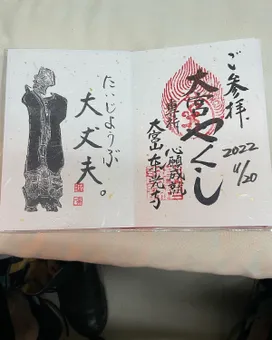 ご参拝
大宮やくし
2022
11/20
心願成就
大宮山東光寺
だいじょうぶ
大丈夫。